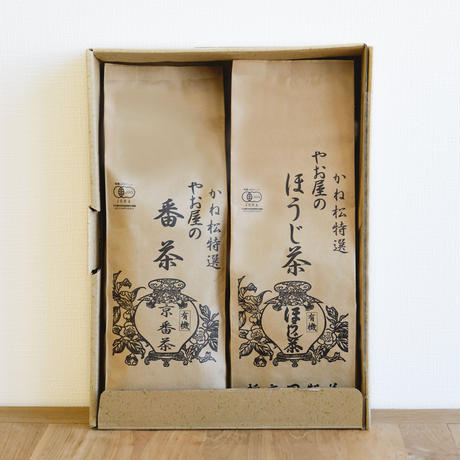 かね松特選
やお屋の
番茶
有機
京番茶
かね松特選
やお屋の
ほうじ茶
有機
ほうじ茶